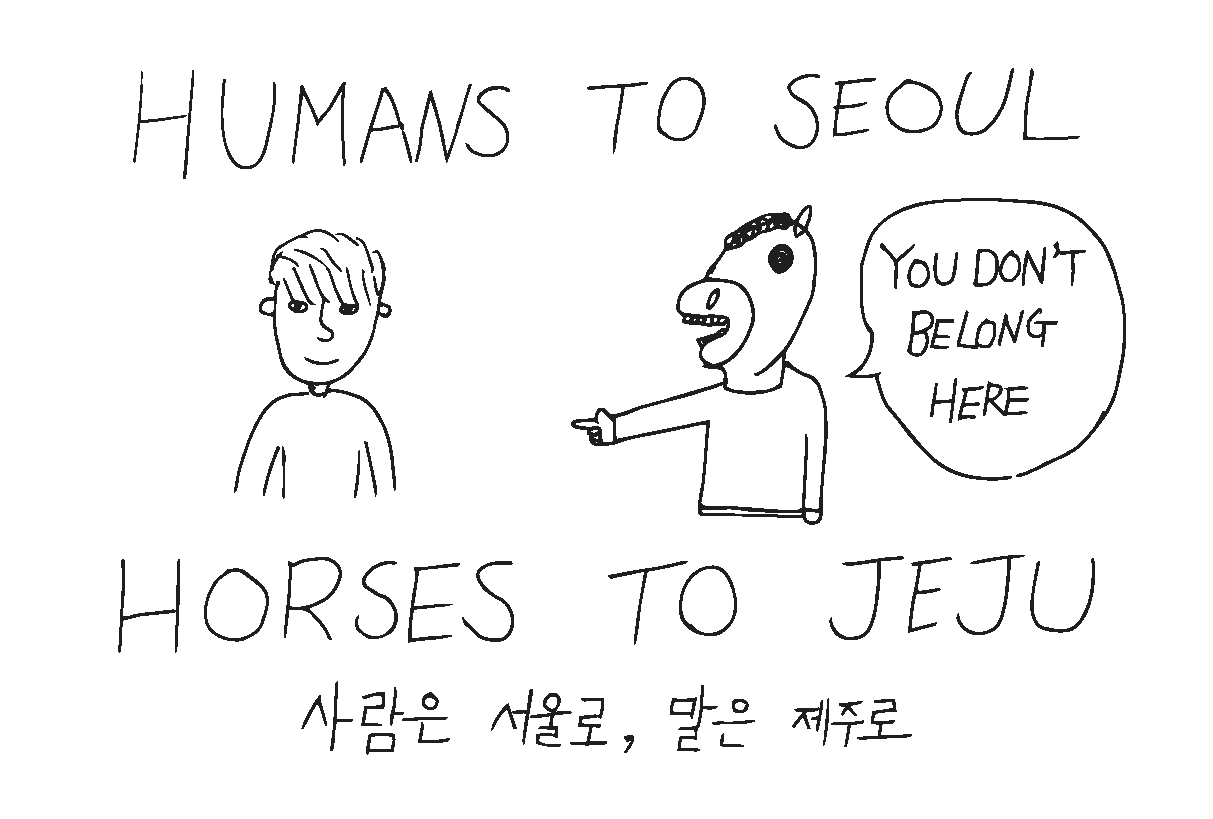 HUMANS TO SEOUL
YOU DON'T
BELONG
HERE
HORSES TO JEJU
사람은 서울로, 말은 제주로